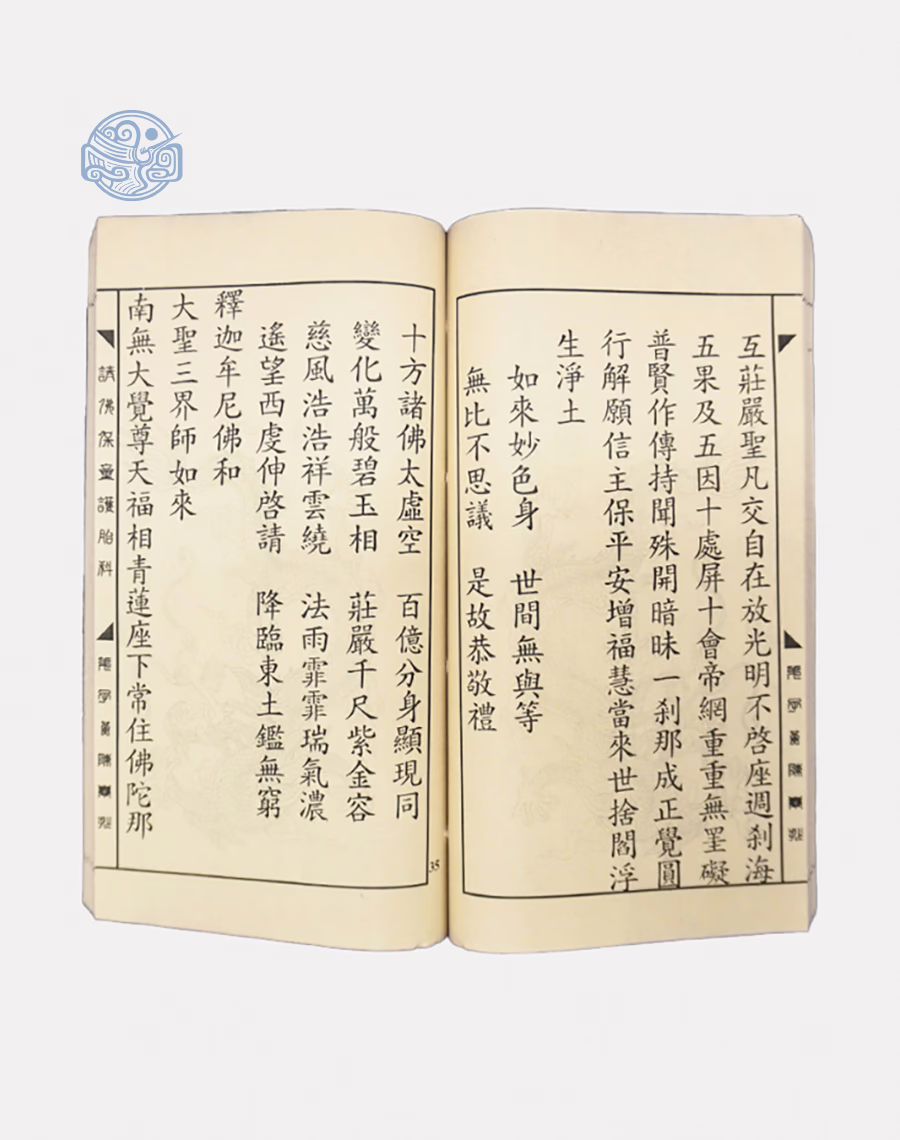 互莊嚴聖凡交自在放光明不啓座週刹海
五果及五因十處屏十會帝網重重無罣礙
普賢作傳持聞殊開暗昧一刹那成正覺圓
行解願信主保平安增福慧當來世捨閻浮
生淨土
如來妙色身　世間無與等
無比不思議　是故恭敬禮
十方諸佛太虛空　百億分身顯現同
變化萬般碧玉相　莊嚴千尺紫金容
慈風浩浩祥雲繞　法雨霏霏瑞氣濃
遙望西虔伸啓請　降臨東土鑑無窮
釋迦牟尼佛和
大聖三界師如來
南無大覺尊天福相青蓮座下常住佛陀那
請佛保童護胎科
35